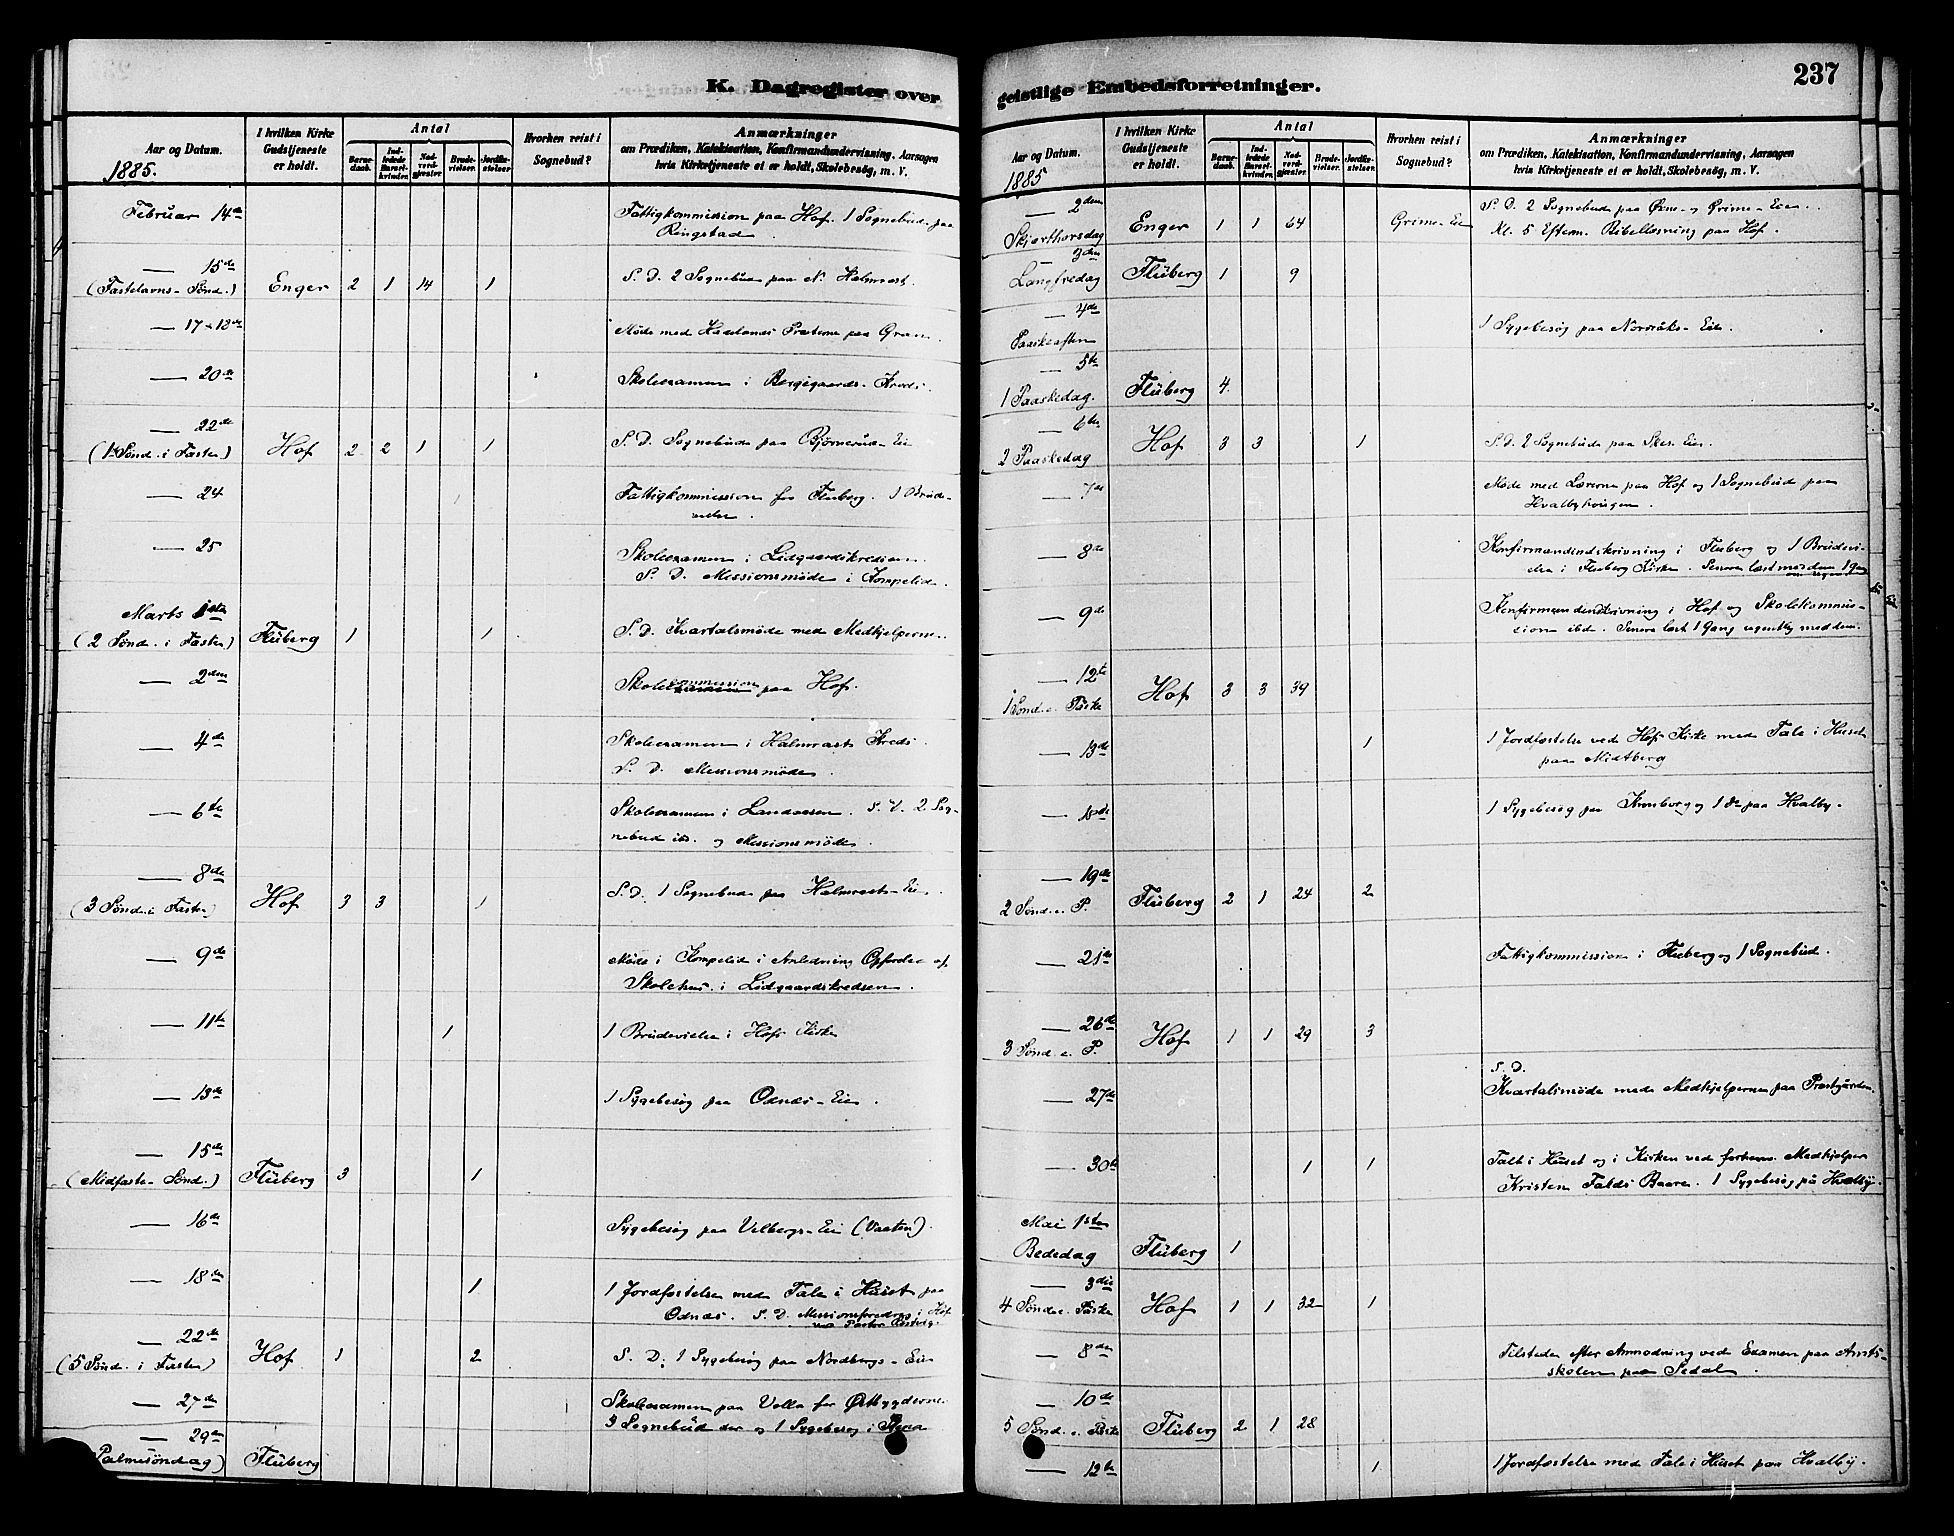 K. Dagregister over
Aar og Datum.
1885.
I hvilken Kirke Gudstjeneste er holdt.
Antal
Barnedaab.
Indledede Barselkvinder.
Nadverdgjæster.
Brudevielser.
Jordfæstelser.
Hvorhen reist i Sognebud?
Anmærkninger
om Prædiken, Katekisation, Konfirmandundervisning, Aarsagen
hvis Kirketjeneste ei er holdt, Skolebesøg, m. V.
Februar 14de Fattigkommission paa Hof. 1 Sognebud paa
Ringstad
— 15de
(Fastelavns-Sønd.) Enger 2 1 14 1 S. D. 2 Sognebud paa N. Halmrast.
— 17 & 18de Møde med Hadelands Præsterne paa Gran.
— 20de Skoleexamen i Bergegaards-Kreds.
— 22de
(1 Sønd. i Fasten) Hof 2 2 1 1 S. D. Sognebud paa Bjørnerud-Eie
— 24 Fattigkommission for Fluberg. 1 Brude-
vielse.
— 25 Skoleexamen i Lidgaardskredsen.
S. D. Missionsmøde i Kompelid.
Marts 1ste
(2 Sønd. i Fasten) Fluberg 1 1 S. D. Kvartalsmøde med Medhjelperne.
— 2den Skolekommission paa Hof.
— 4de Skoleexamen i Halmrasts Kreds.
S. D. Missionsmøde.
— 6te Skoleexamen i Landaasen. S. D. 2 Sog-
nebud ibd. og Missionsmøde.
— 8de
(3 Sønd. i Fasten) Hof 3 3 1 S. D. 1 Sognebud paa Halmrasts-Eie.
— 9de Møde i Kompelid i Anledning Opførelse af
Skolehus i Lidgaardskredsen.
— 11te 1 1 Brudevielse i Hofs Kirke
— 13de 1 Sygebesøg paa Odnæs-Eie.
— 15de
(Midfaste-Sønd.) Fluberg 3 1
— 16de Sygebesøg paa Velbergs-Eie
— 18de 1 1 Jordfæstelse med Tale i Huset paa
Odnæs. S. D. Missionsforedrag i Hof
ved Pastor
— 22de
(5 Sønd. i Fasten) Hof 1 2 S. D. 1 Sygebesøg paa Nordbergs-Eie
— 27de Skoleexamen paa Volla for Østbygderne.
3 Sognebud der og 1 Sygebesøg i
— 29de
Palmesøndag) Fluberg
geistlige Embedsforretninger.
237
Aar og Datum.
1885
I hvilken Kirke Gudstjeneste er holdt.
Antal
Barnedaab.
Indledede Barselkvinder.
Nadverdgjæster.
Brudevielser.
Jordfæstelser.
Hvorhen reist i Sognebud?
Anmærkninger
om Prædiken, Katekisation, Konfirmandundervisning, Aarsagen
hvis Kirketjeneste ei er holdt, Skolebesøg, m. V.
— 2den S. D. 2 Sognebud paa Øxne- og Grime-Eie.
Skjærthorsdag Enger 1 1 64 Grime-Eie Kl. 5 Efterm. Bibellæsning paa Hof.
— 3die
Langfredag Fluberg 1 9
— 4de 1 Sygebesøg paa Nordraks-Eie.
Paaskeaften
— 5te
1 Paaskedag. Fluberg 4
— 6te
2 Paaskedag Hof 3 3 1 S. D. 2 Sognebud paa Skes-Eie.
— 7de Møde med Lærerne paa Hof og 1 Sognebud paa
Hvalbyhougen.
— 8de Konfirmandindskrivning i Fluberg og 1 Brudevi-
else i Fluberg Kirke. Senere læst med dem 1 Gang
om ugen
— 9de Konfirmandindskrivning i Hof og Skolekommis-
sion ibd. Senere læst 1 Gang ugentlig med dem.
— 12te
1 Sønd. e. Påske Hof 3 3 39
— 13de 1 1 Jordfæstelse ved Hofs Kirke med Tale i Huset
paa Midtberg
— 18de 1 Sygebesøg paa og 1 do paa Hvalby.
— 19de
2 Sønd. e. P. Fluberg 2 1 24 2
— 21de Fattigkommission i Fluberg og 1 Sognebud.
— 26de
3 Sønd. e. P. Hof 1 1 29 3
— 27de S. D.
Kvartalsmøde med Medhjelperne paa Præstgården.
— 30te 1 1 Tale i Huset og i Kirken ved forhenv. Medhjelper
Kristen Falds Baare. 1 Sygebesøg på Hvalby.
Mai 1ste
Bededag Fluberg 1
— 3die
4 Sønd e. Påske Hof 1 1 32 1
— 8de Tilstede efter Anmodning ved Examen paa Amts-
skolen paa Sedal.
— 10de
5 Sønd. e. Påske Fluberg 2 1 28
— 12te 1 1 Jordfæstelse med Tale i Huset paa Hvalby.